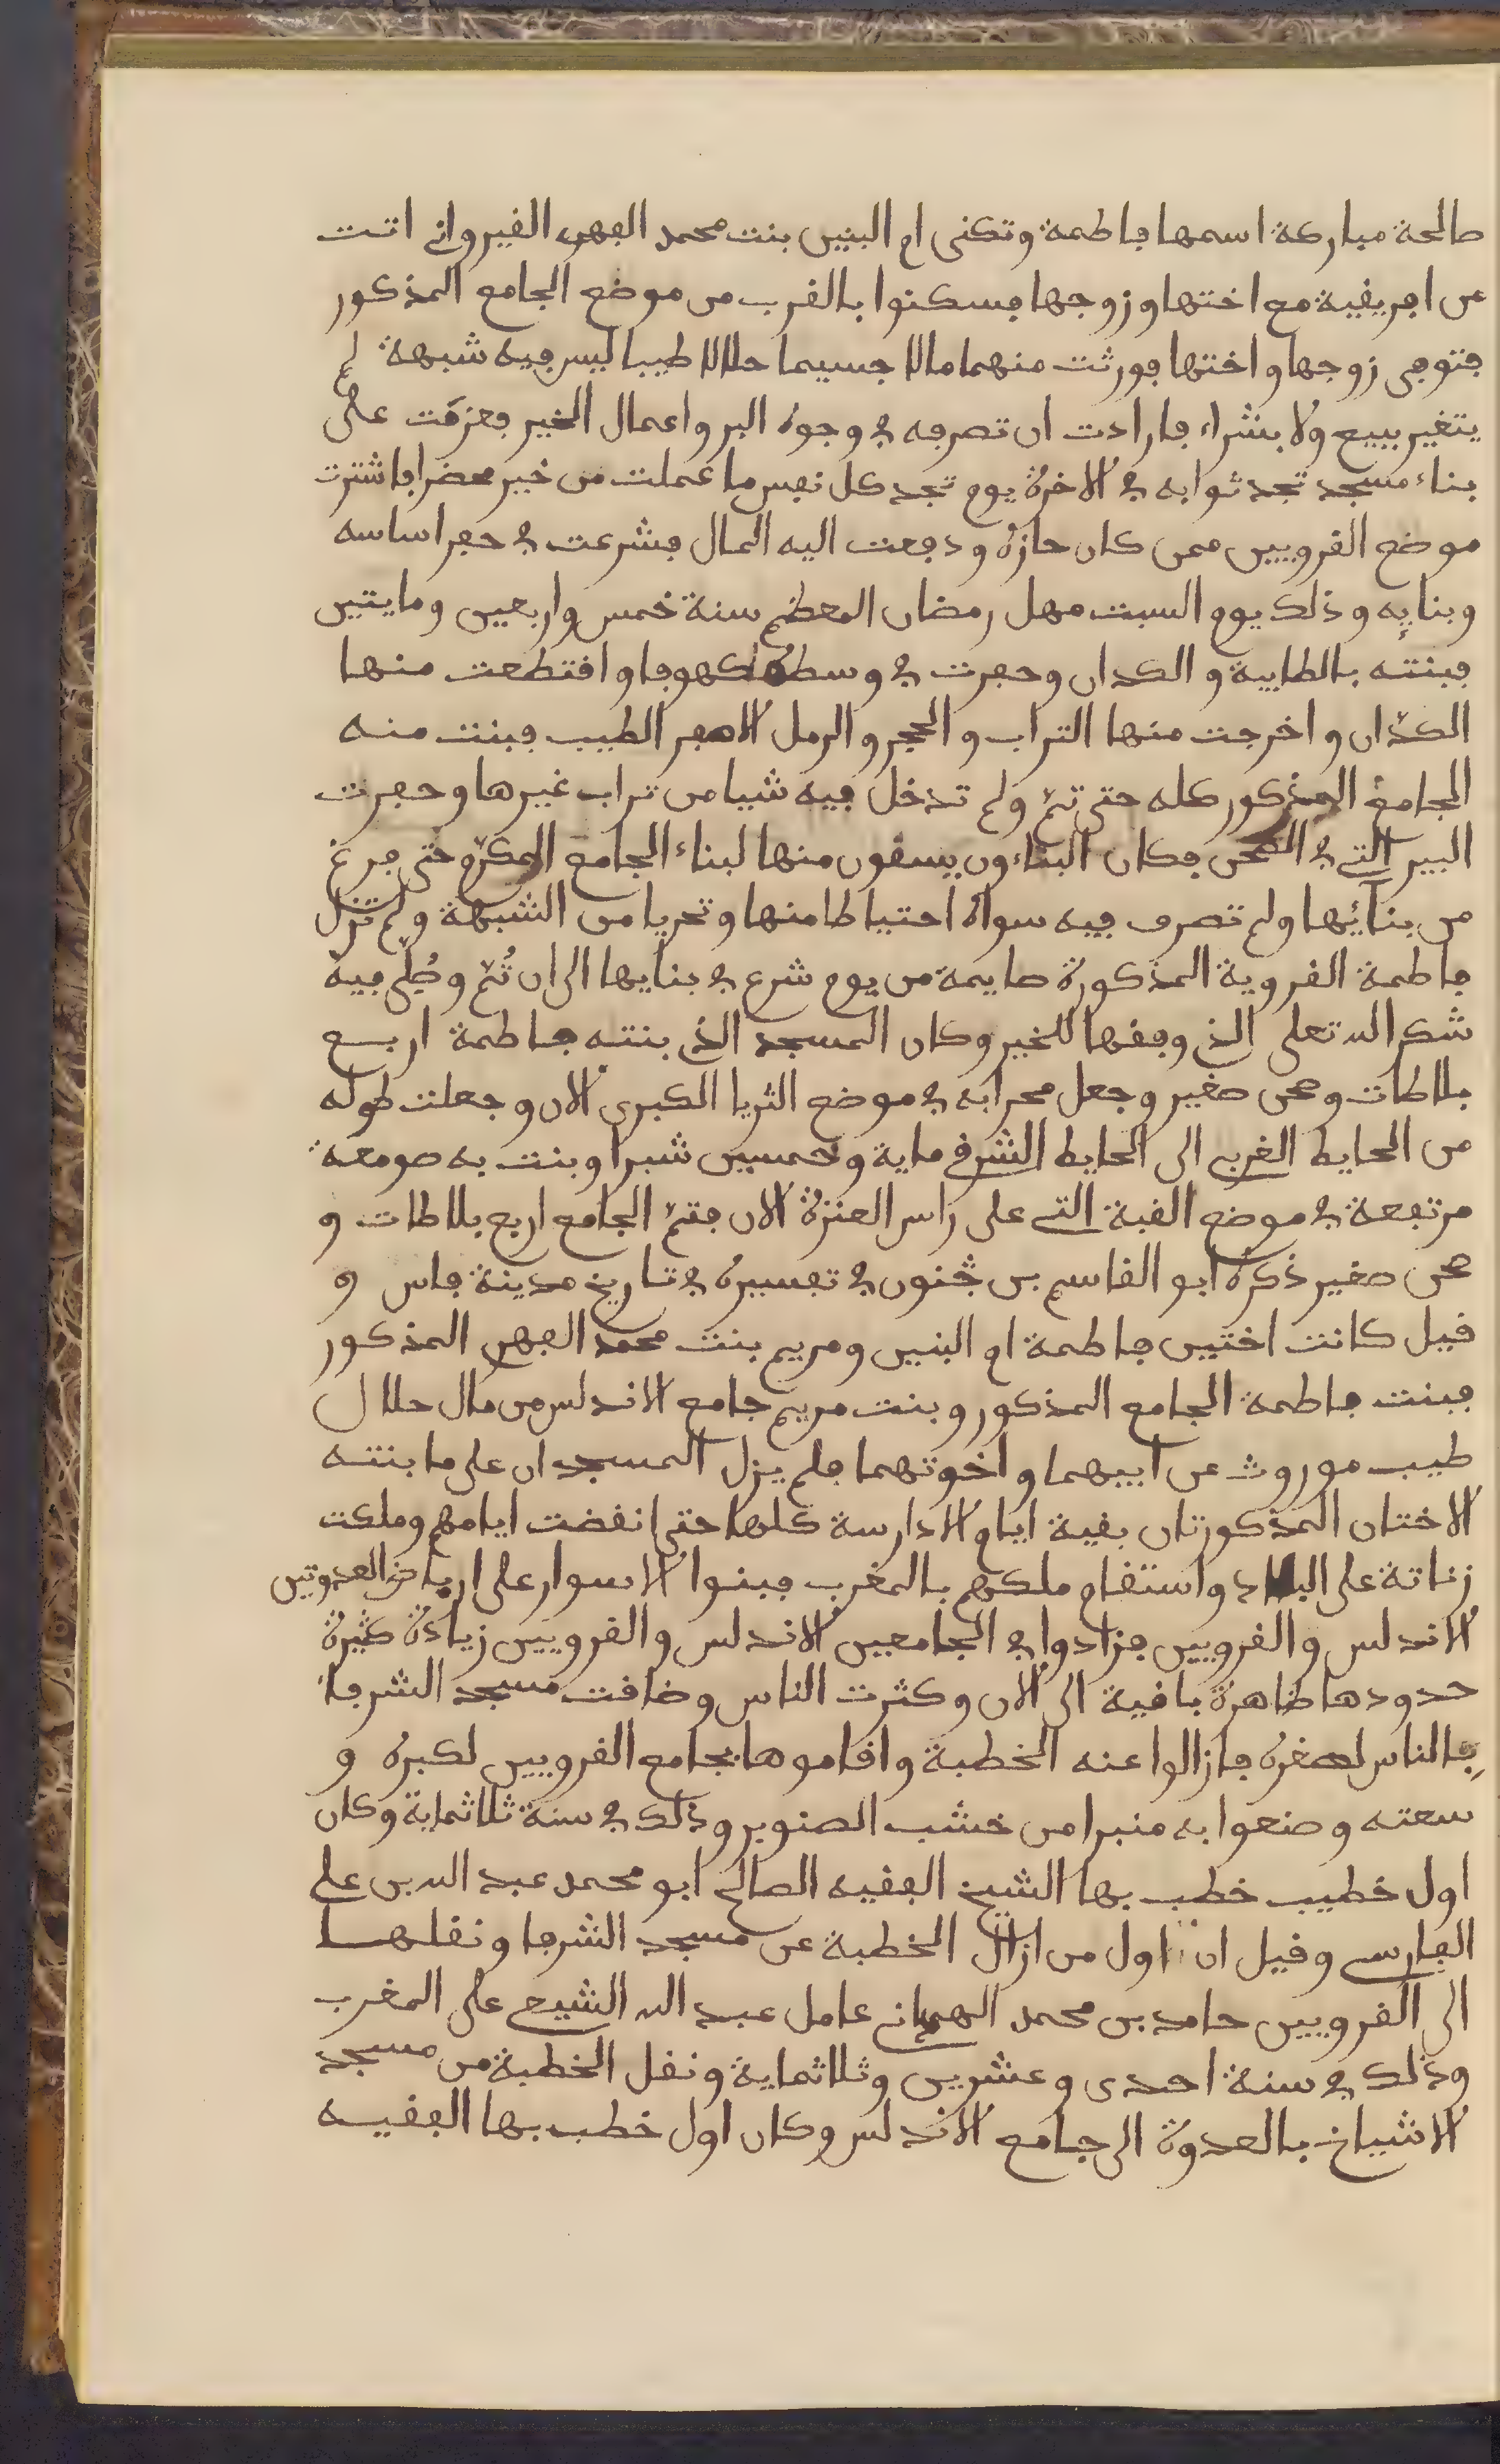 صالحة مباركة اسمها فاطمة وتكنى ام البنين بنت محمد الفهرى القيرواني اتت
من افريقية مع اختها وزوجها فسكنوا بالقرب من موضع الجامع المذكور
فتوفى زوجها واختها فورثت منهما مالا جسيما حلالا طيبا ليس فيه شبهة لم
يتغير ببيع ولا بشراء فارادت ان تصرفه في وجوه البر واعمال الخير فعزمت على
بناء مسجد تجد ثوابه في الاخرة يوم تجد كل نفس ما عملت من خير محضرا فاشترت
موضع القرويين ممن كان حازه ودفعت اليه المال فشرعت في حفر اساسه
وبنايه وذلك يوم السبت مهل رمضان المعظم سنة خمس واربعين ومايتين
فبنته بالطابية والكدان وحفرت في وسطه كهوفا واقتطعت منها
الكدّان واخرجت منها التراب والحجر والرمل الاصفر الطيب فبنت منه
الجامع المذكور كله حتى تمّ ولم تدخل فيه شيا من تراب غيرها وحفرت
البير التي في الصحن فكان البنّاءون يسقون منها لبناء الجامع المكرّم حتى فرغ
من بنائها ولم تصرف فيه سواه احتياطا منها وتحريا من الشبهة ولم تزل
فاطمة القروية المذكورة صايمة من يوم شرع في بنايها الى ان تُمّ وصُلّى فيه
شكر الله تعلى الذي وفقها للخير وكان المسجد الذي بنته فاطمة اربع
بلاطات وصحن صغير وجعل محرابه في موضع الثريا الكبرى الان وجعلت طوله
من الحايط الغربي الى الحايط الشرقي ماية وخمسين شبرا وبنت به صومعة
مرتفعة في موضع القبة التي على راس العنزة الان فتمّ الجامع اربع بلاطات و
صحن صغير ذكره ابو القاسم بن جنون في تفسيره في تاريخ مدينة فاس و
قيل كانت اختين فاطمة ام البنين ومريم بنت محمد الفهرى المذكور
فبنت فاطمة الجامع المذكور وبنت مريم جامع الاندلس من مال حلال
طيب موروث عن ابيهما واخوتهما فلم يزل المسجدان على ما بنته
الاختان المذكورتان بقية ايام الادارسة كلها حتى انقضت ايامهم وملكت
زناتة على البلاد واستقام ملكهم بالمغرب فبنوا الاسوار على ارباض العدوتين
الاندلس والقرويين فزادوا في الجامعين الاندلس والقرويين زيادة كثيرة
حدودها ظاهرة باقية الى الان وكثرت الناس وضاقت مسجد الشرفا
بالناس لصغره فازالوا عنه الخطبة واقاموها بجامع القرويين لكبره و
سعته وصنعوا به منبرا من خشب الصنوبر وذلك في سنة ثلاثماية وكان
اول خطيب خطب بها الشيخ الفقيه الصالح ابو محمد عبد الله بن على
الفارسي وقيل ان اول من ازال الخطبة عن مسجد الشرفا ونقلها
الى القرويين حامد بن محمد الهمداني عامل عبد الله الشيع على المغرب
وذلك في سنة احدى وعشرين وثلاثماية ونقل الخطبة من مسجد
الاشياخ بالعدوة الى جامع الاندلس وكان اول خطب بها الفقيه